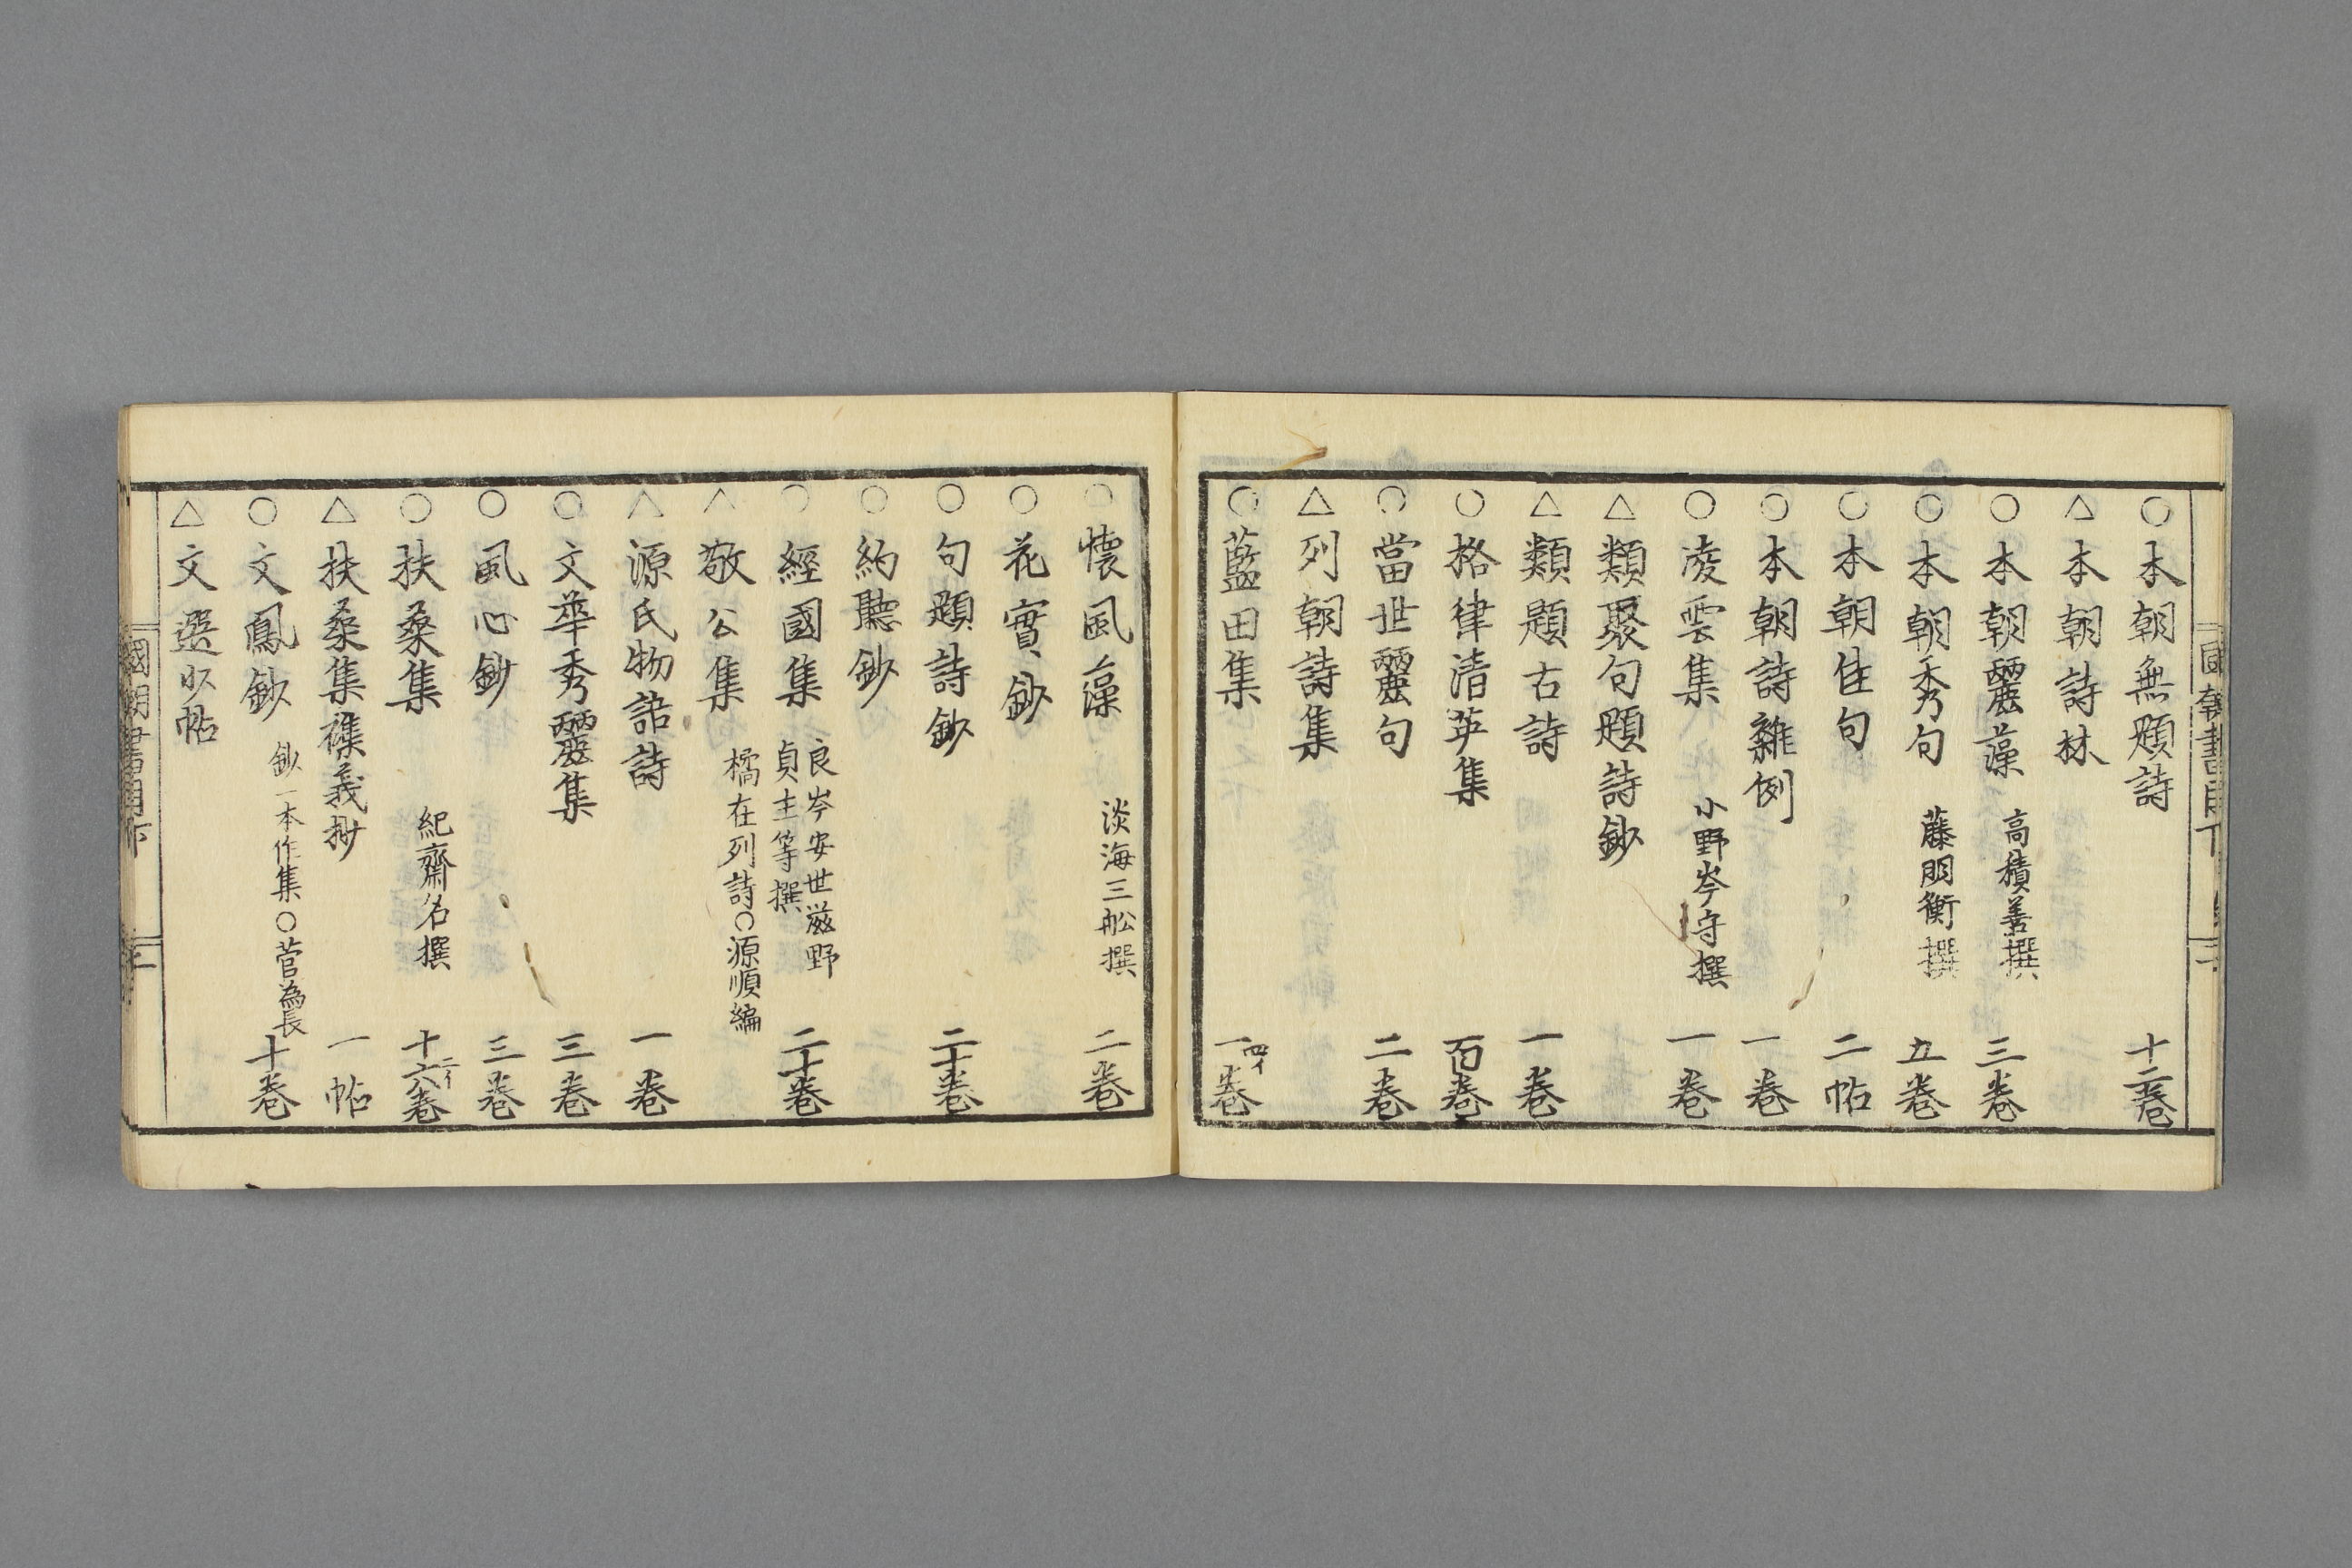 ○本朝無題詩 十二卷
△本朝詩林
○本朝麗藻 高積善撰 三卷
○本朝秀句 藤明衡撰 五卷
○本朝佳句 二帖
○本朝詩雜例 一卷
○凌雲集 小野岑守撰 一卷
△類聚句題詩鈔
△類題古詩 一卷
○格律清英集 百卷
○當世麗句 二卷
△列朝詩集
○藍田集 一四イ卷
○懷風藻 淡海三舩撰 二卷
○花實鈔
○句題詩鈔 二十卷
○約聽鈔
○經國集 良岑安世滋野貞主等撰 二十卷
△敬公集 橘在列詩○源順編
△源氏物語詩 一卷
○文華秀麗集 三卷
○風心鈔 三卷
○扶桑集 紀齋名撰 十六二イ卷
△扶桑集襍義抄 一帖
○文鳳鈔 鈔一本作集○菅為長 十卷
△文選少帖
國朝書目下